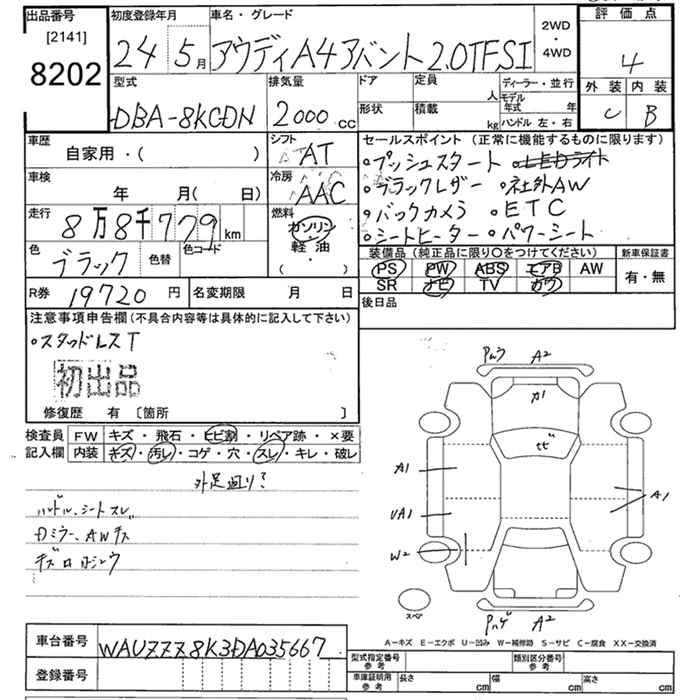 出品番号 初度登録年月 車名・グレード 2WD・4WD 評価点
[2141]
8202 24 5月 アウディA4アバント2.0TFSI 4
型式 排気量 ドア 定員 人 ディーラー・並行 外装 内装
DBA-8KCDN 2000cc 形状 積載 kg モデル年式 年 C B
ハンドル 左・右
車歴 シフト セールスポイント(正常に機能するものに限ります)
自家用・( ) AT •プッシュスタート •LEDライト
車検 冷房 •ブラックレザー •社外AW
年 月( 日) AAC •バックカメラ •ETC
走行 燃料 •シートヒーター •パワーシート
8万8千779km ガソリン
軽油
・( )
色 色替 色コード 装備品(純正品に限り○をつけてください) 新車保証書
ブラック PS PW ABS エアB AW 有・無
SR ナビ TV カワ
R券 19720円 名変期限 月 日 後日品
注意事項申告欄(不具合内容等は具体的に記入して下さい)
•スタッドレスT
初出品
修復歴 有 〔箇所 〕
検査員記入欄 FW キズ・飛石・ヒビ割・リペア跡・×要
内装 キズ・汚レ・コゲ・穴・スレ・キレ・破レ
外足廻り?
ハンドル、シートスレ
Dミラー、AWキズ
A2
A1
ヒビ
A1
UA1
A1
W2
スペア
A2
A-キズ E-エクボ U-凹み W-補修跡 S-サビ C-腐食 XX-交換済
車台番号 WAUZZZ8K3DA035667
登録番号
型式指定番号 参考 類別区分番号 参考
車庫証明用 参考 長さ cm 幅 cm 高さ cm